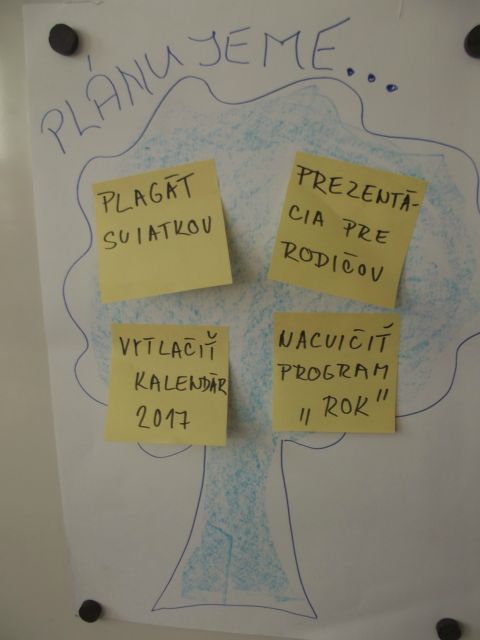 PLÁNUJEME...
PLAGÁT
SVIATKOV
PREZENTÁ-
CIA PRE
RODIČOV
VYTLAČIŤ
KALENDÁR
2017
NACVIČIŤ
PROGRAM
„ROK"